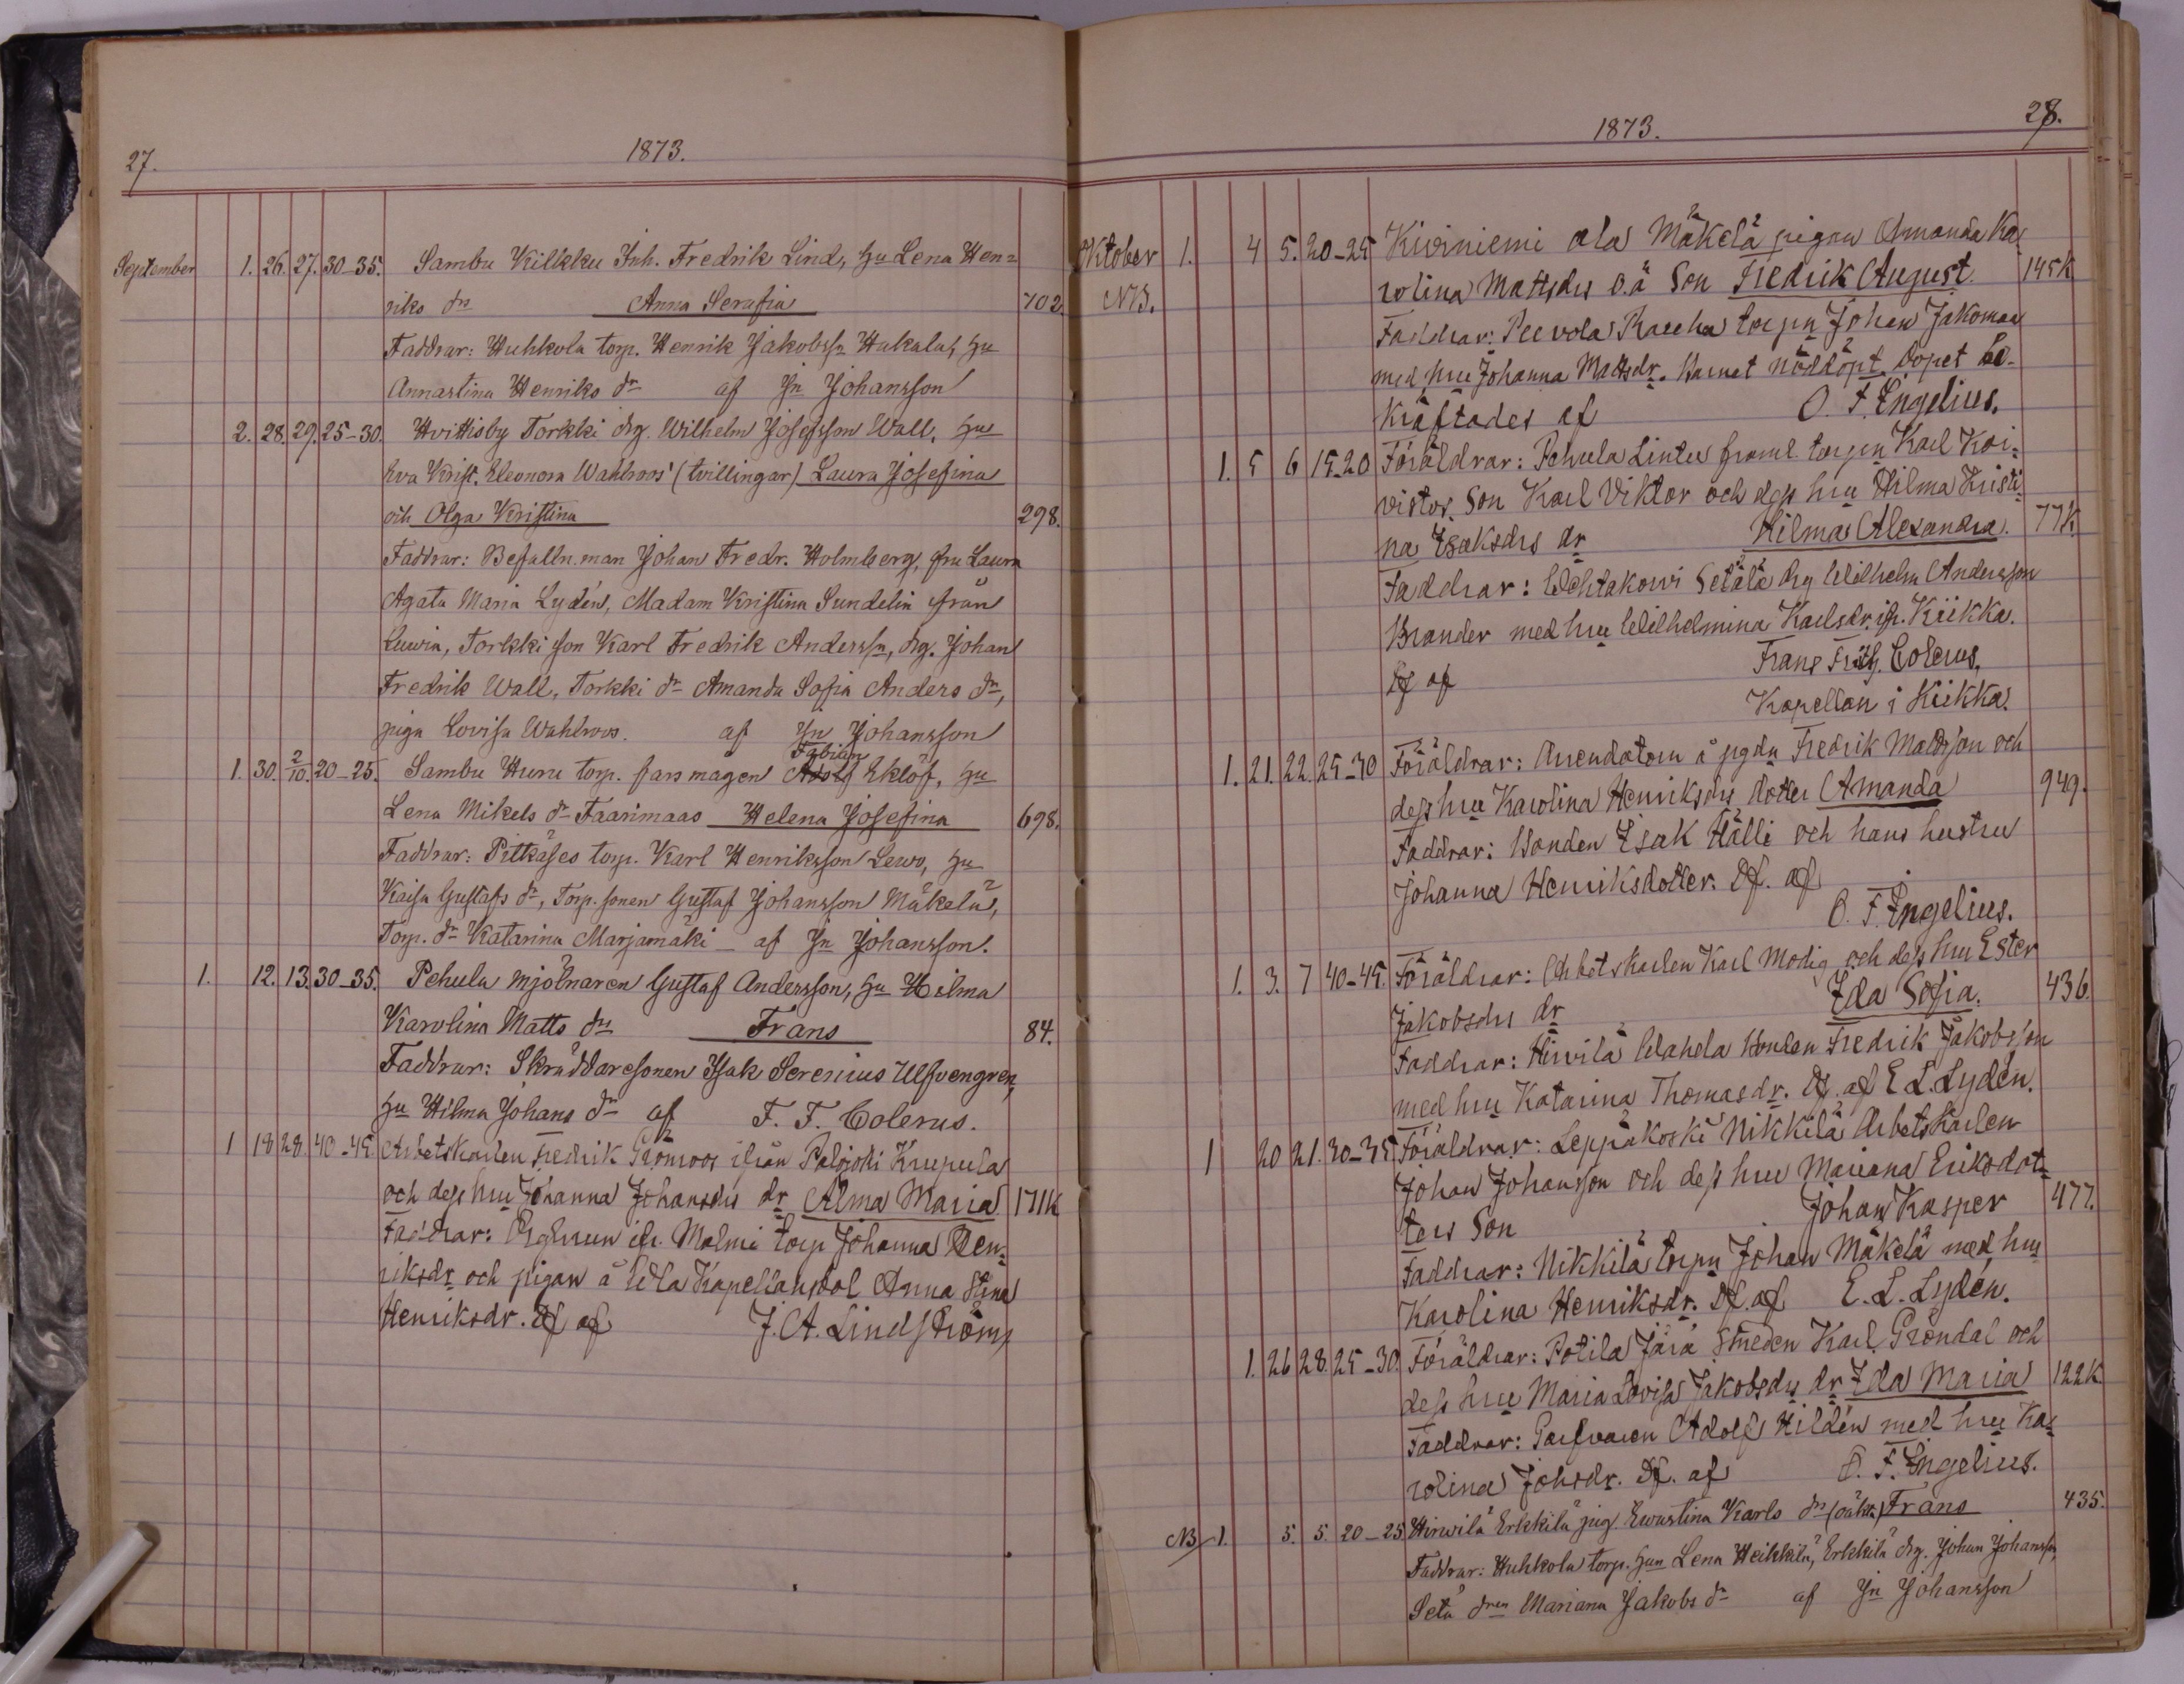 27.
1873.
September 1. 26. 27. 30-35. Sambu Kilkku Inh. Fredrik Lind, hu Lena Hen=
riks dr Anna Serafia 702.
Faddrar: Huhkola torp. Henrik Jakobssn Hakala, hu
Annastina Henriks dr af Jn Johansson
2. 28. 29. 25-30. Hvittisby Torkki drg. Wilhelm Josefsson Wall, hu
Eva Krist. Eleonora Wahlroos (tvillingar) Laura Josefina
och Olga Kristina 298.
Faddrar: Befalln.man Johan Fredr. Holmberg, fru Laura
Agata Maria Lydén, Madam Kristina Sundelin från
Luvia, Torkki son Karl Fredrik Anderssn, drg. Johan
Fredrik Wall, Torkki dr Amanda Sofia Anders dr,
piga Lovisa Wahlroos. af Jn Johansson
Fabian
1. 30. 2/10. 20-25. Sambu Huru torp. fars mågen Adolf Eklöf, hu
Lena Mikels dr Faarimaas Helena Josefina 698.
Faddrar: Pitkäjes torp. Karl Henriksson Lewo, hu
Kaisa Gustafs dr, Torp. sonen Gustaf Johansson Mäkelä,
Torp. dr Katarina Marjamäki - af Jn Johansson.
1. 12. 13. 30-35. Pehula mjölnaren Gustaf Andersson, hu Hilma
Karolina Matts dr Frans 84.
Faddrar: Skräddaresonen Isak Serenius Ulfvengren,
hu Hilma Johans dr af F. F. Colerus.
1 18 28. 40-45. Arbetskarlen Fredrik Grönroos ifrån Palojoki Krupula
och dess hru Johanna Johansdrs dr Alma Maria 171K
Faddrar: Drghrun ifr. Malmi torp Johanna Hen=
riksdr och pigan å Kapellansbol Anna Stina
Henriksdr. Df af J. A. Lindström
28.
1873.
Oktober 1. 4 5. 20-25 Kiviniemi ala Mäkelä pigan Amanda Ka
NB. rolina Mattsdrs o.ä Son Fredrik August. 145K
Faddrar: Peevola torpn Johan Jakoman
med hru Johanna Mattsdr. Barnet nöddöpt. Dopet be-
kräftades af O. F. Engelius.
1. 5 6 15.20 Föräldrar: Pehula Lintu framl. torpn Karl Koi=
vistos Son Karl Viktor och dess hru Hilma Kristi
na Isaksdrs dr Hilma Alexandra. 77K.
Faddrar: Wehtakorvi Setälä drg Wilhelm Andersson
Brander med hru Wilhelmina Karlsdr. ifr. Kiikka.
Df af Frans Frith. Colerus.
Kapellan i Kiikka.
1. 21. 22. 25-30 Föräldrar: Arendatorn å pgdn Fredrik Mattsson och
dess hru Karolina Henriksdrs dotter Amanda 949.
Faddrar: Bonden Isak Hälli och hans hustru
Johanna Henriksdotter. Df. af
O. F. Engelius.
1. 3. 7 40-45. Föräldrar: Arbetskarlen Karl Modig och dess hru Ester
Jakobsdrs dr Ida Sofia. 436.
Faddrar: Hirvilä Wahela Bonden Fredrik Jakobsson
med hru Katarina Thomasdr. Df. af E. L. Lydén.
1 20 21. 30-35 Föräldrar: Leppäkoski Nikkilä Arbetskarlen
Johan Johansson och dess hru Mariana Eriksdot=
ters Son Johan Kasper 477.
Faddrar: Nikkilä torpn Johan Mäkelä med hru
Karolina Henriksdr. Df. af E. L. Lydén.
1. 26 28. 25-30. Föräldrar: Potila Järä Smeden Karl Gröndal och
dess hru Maria Lovisa Jakobsdrs dr Ida Maria 122K
Faddrar: Garfvaren Adolf Hildén med hru Ka=
rolina Johsdr. Df. af O. F. Engelius.
NB 1. 5. 5. 20-25. Hirwilä Erkkilä pig. Ewastina Karls dr (oäkta) Frans 435.
Faddrar: Huhkola torp. hun Lena Heikkilä, Erkkilä drg. Johan Johanssn,
Setä drn Mariana Jakobs dr af Jn Johansson